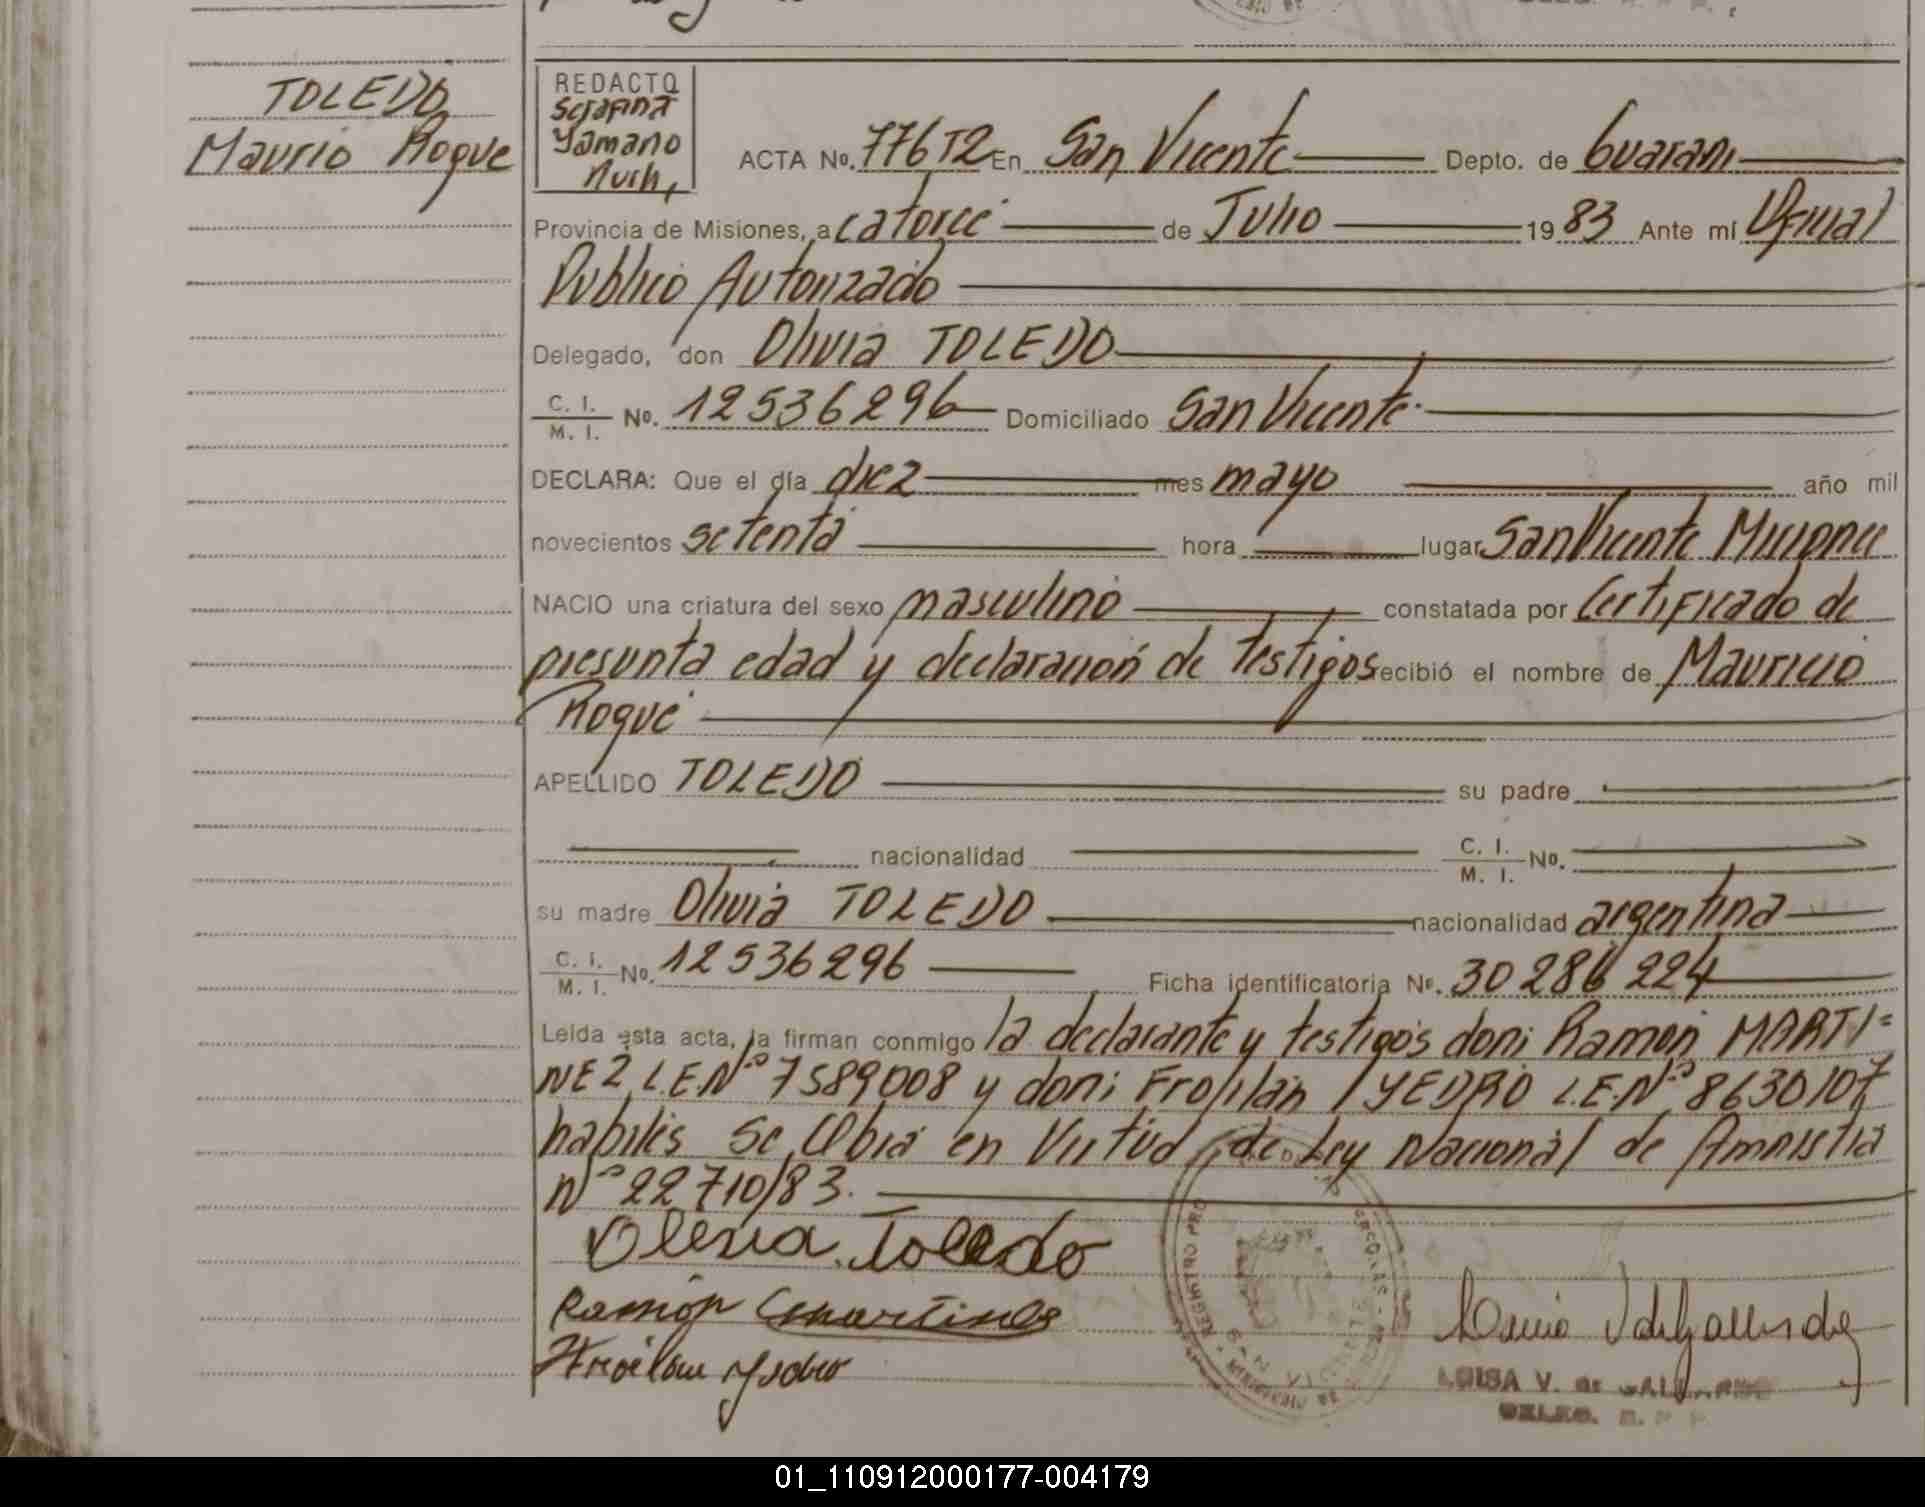 TOLEDO
Mauricio Roque
REDACTO
Serafina
Yamano
ACTA No. 776T2 En San Vicente Depto. de Guarani
Provincia de Misiones, a catorce de Julio 1983 Ante mí Oficial
Publico Autorizado
Delegado, don Olivia TOLEDO
C. I. / M. I. No. 12536296 Domiciliado San Vicente
DECLARA: Que el día diez mes mayo año mil
novecientos setenta hora lugar San Vicente Misiones
NACIO una criatura del sexo masculino constatada por Certificado de
presunta edad y declaración de testigos recibió el nombre de Mauricio
Roque
APELLIDO TOLEDO su padre
nacionalidad C. I. / M. I. No.
su madre Olivia TOLEDO nacionalidad argentina
C. I. / M. I. No. 12536296 Ficha identificatoria No. 30286224
Leida esta acta, la firman conmigo la declarante y testigos don: Ramón MARTI=
NEZ L.E.Nº 7589008 y don: Froilán YEDRO L.E.Nº 8630107
habiles se labra en virtud de Ley Nacional de Amnistia
Nº 22710/83.
Olevia Toledo
Ramón Martines
Froilan Yedro
REGISTRO
LUISA V. de
DELEG. R. P. P.
01_110912000177-004179